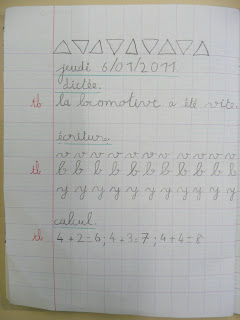 jeudi 6/01/2011
dictée.
tb la locomotive a été vite.
écriture.
v v v v v v v v v v
tb b b b b b b b b b b
y y y y y y y y y y
calcul.
tb 4+2=6; 4+3=7; 4+4=8